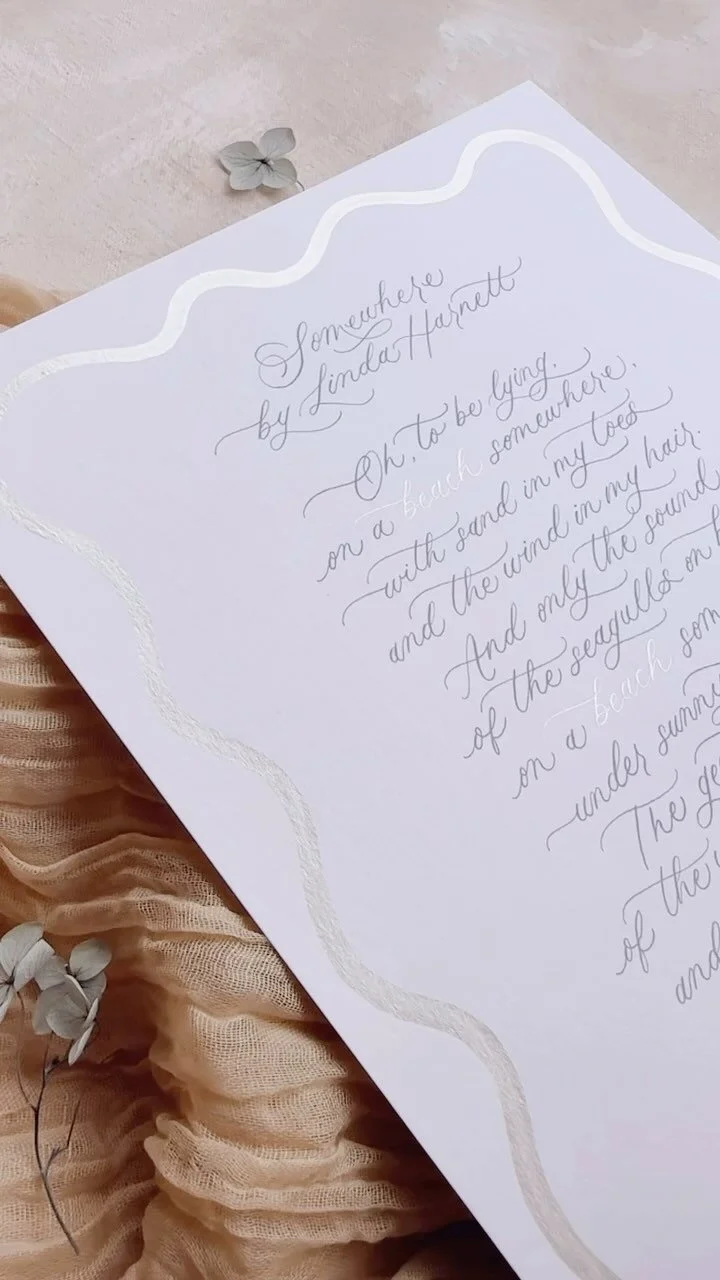 Somewhere
by Linda Harnett
Oh, to be lying,
on a beach somewhere,
with sand in my toes
and the wind in my hair.
And only the sound
of the seagulls on
on a beach
under sunny
The
of the
and